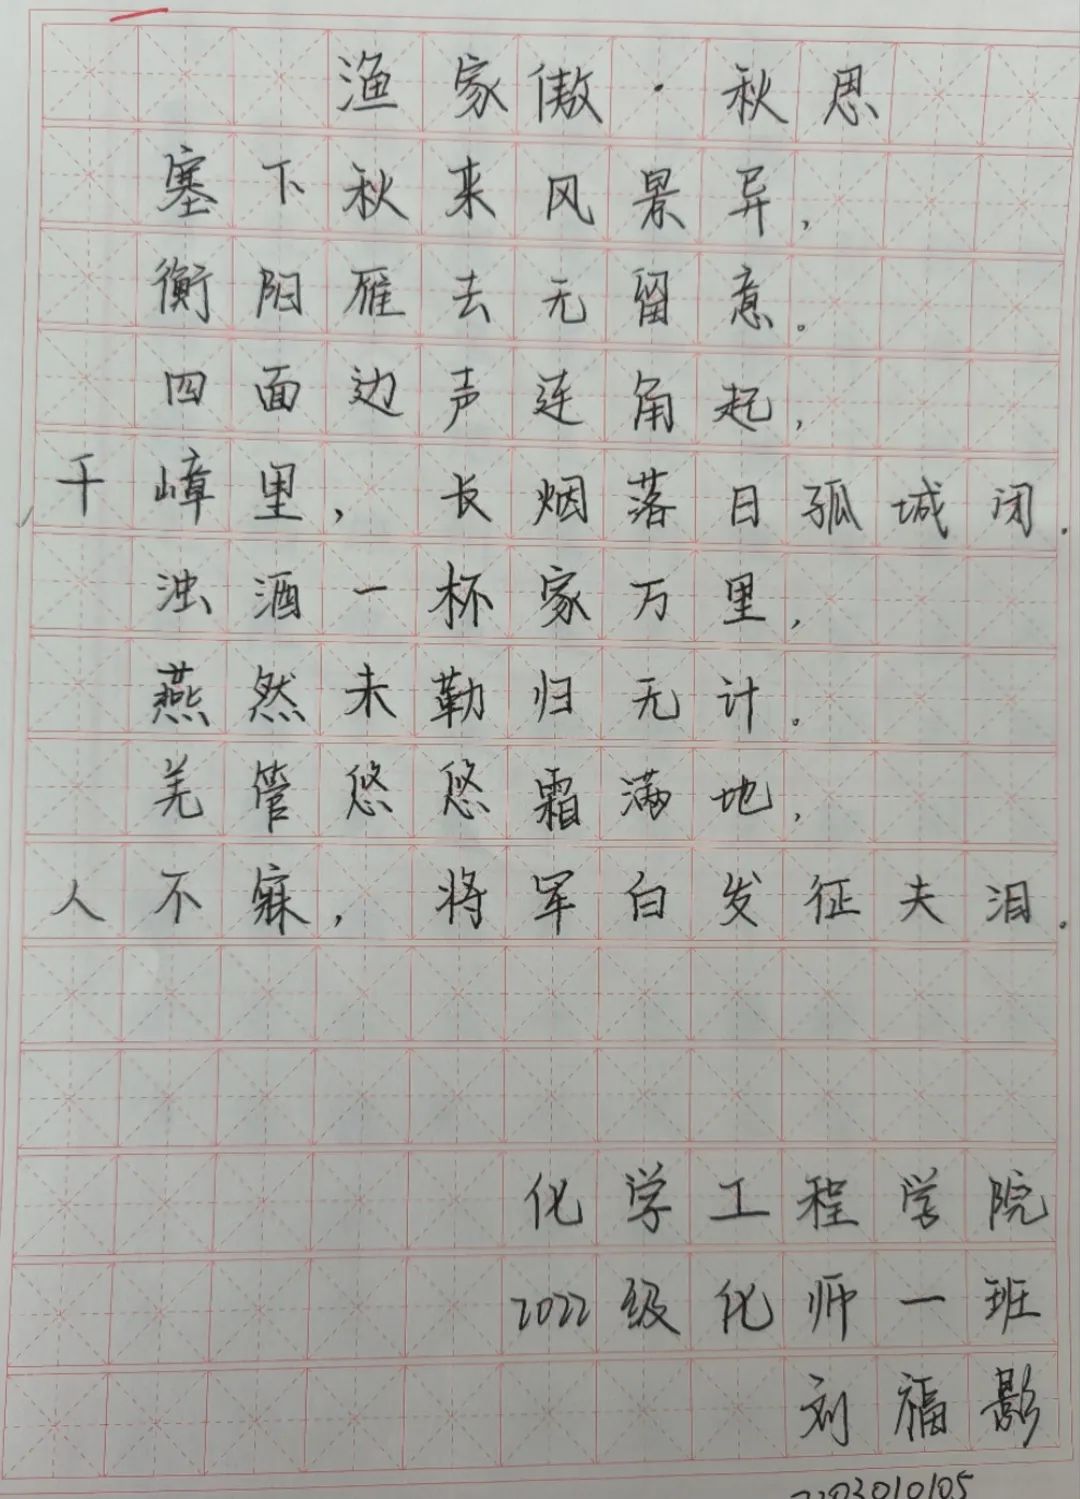 渔家傲·秋思
塞下秋来风景异,
衡阳雁去无留意。
四面边声连角起,
千嶂里, 长烟落日孤城闭.
浊酒一杯家万里,
燕然未勒归无计。
羌管悠悠霜满地,
人不寐, 将军白发征夫泪.
化学工程学院
2022级化师一班
刘福影